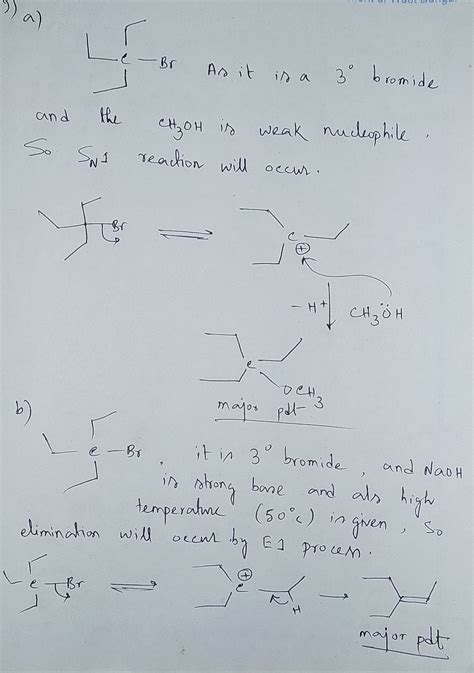 9)
a)
C — Br As it is a 3° bromide
and the CH3OH is weak nucleophile.
So SN1 reaction will occur.
Br
C
⊕
- H+ CH3ÖH
C
OCH3
major pdt
b)
C — Br
it is 3° bromide, and NaOH
is strong base and als high
temperature (50°c) is given, so
elimination will occur by E1 process.
C Br ⊕ C H
major pdt